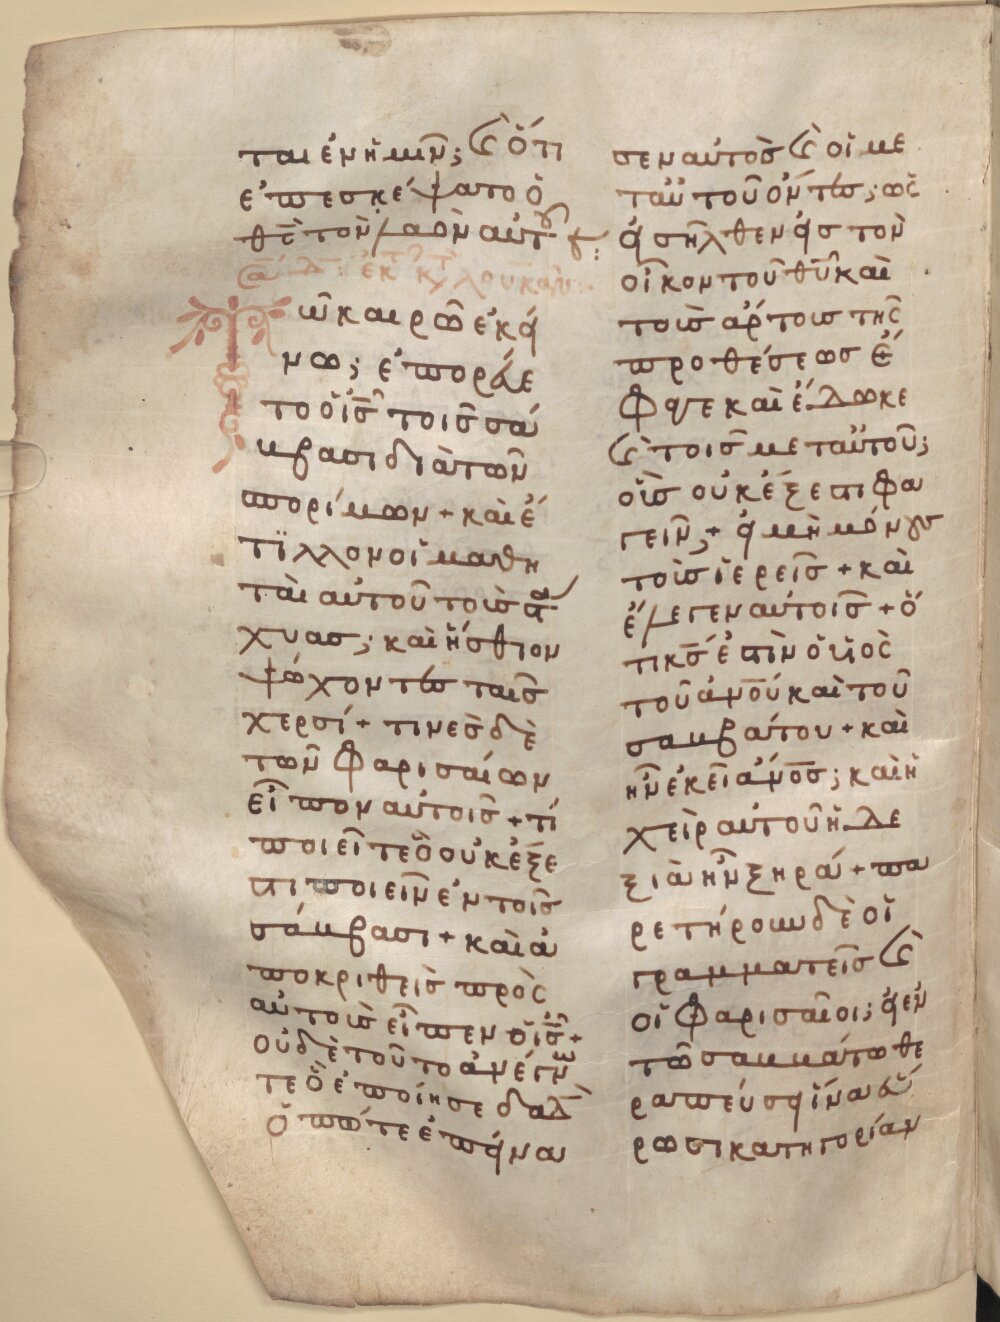 ται ἐν ἡμῖν; (καὶ) ὅτι
ἐπεσκέψατο ὁ
θς τὸν λαὸν αὐτοῦ
τῶ καιρῶ ἐκεί
νω; ἐπορεύε
το ὁ ις τοῖς σά
μβασι διὰ τῶν
σπορίμων + καὶ ἔ
τιλλον οἱ μαθη
ταὶ αὐτοῦ τοὺς στά
χυας; καὶ ἤσθιον
ψώχοντες ταῖς
χερσί + τινὲς δὲ
τῶν Φαρισαίων
εἶπον αὐτοῖς + τί
ποιεῖτε ὃ οὐκ ἔξε
στι ποιεῖν ἐν τοῖς
σάμβασι + καὶ ἀ
ποκριθεὶς πρὸς
αὐτοὺς εἶπεν ὁ ις +
οὐδὲ τοῦτο ἀνέγνω
τε ὃ ἐποίησε δαδ
ὁπότε ἐπείνα
σεν αὐτὸς (καὶ) οἱ με
τ αὐτοῦ ὄντες; ὡς
εἰσῆλθεν εἰς τὸν
οἶκον τοῦ θυ καὶ
τοὺς ἄρτους τῆς
προθέσεως ἔ
φαγε καὶ ἔδωκε
(καὶ) τοῖς μετ αὐτοῦ;
οἷς οὐκ ἔξεστι φα
γεῖν; + εἰ μὴ μόνους
τοὺς ἱερεῖς + καὶ
ἔλεγεν αὐτοῖς + ὅ
τι κς ἐστὶν ὁ υἱὸς
τοῦ ανου καὶ τοῦ
σαμβάτου + καὶ
ἦν ἐκεῖ ανος; καὶ ἡ
χεὶρ αὐτοῦ ἡ δε
ξιὰ ἦν ξηρά + πα
ρετήρουν δὲ οἱ
γραμματεῖς (καὶ)
οἱ Φαρισαῖοι; εἰ ἐν
τῶ σαμμάτω θε
ραπεύσει ἵνα εὕ
ρωσι κατηγορίαν